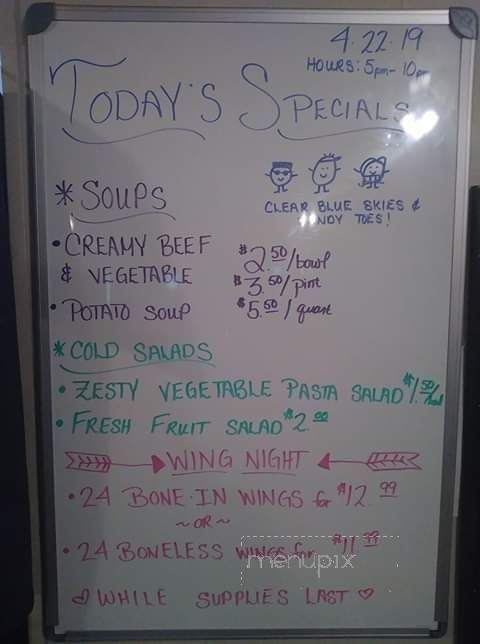 4.22.19
HOURS: 5pm-10pm
TODAY'S SPECIALS
* SOUPS
CLEAR BLUE SKIES &
SANDY TOES!
• CREAMY BEEF
& VEGETABLE
$2.50/bowl
$3.50/pint
• POTATO SOUP
$5.50/quart
* COLD SALADS
• ZESTY VEGETABLE PASTA SALAD $1.50/
• FRESH FRUIT SALAD $2.00
WING NIGHT
• 24 BONE-IN WINGS for $12.99
~OR~
• 24 BONELESS WINGS for $11.99
menupix
♡ WHILE SUPPLIES LAST ♡